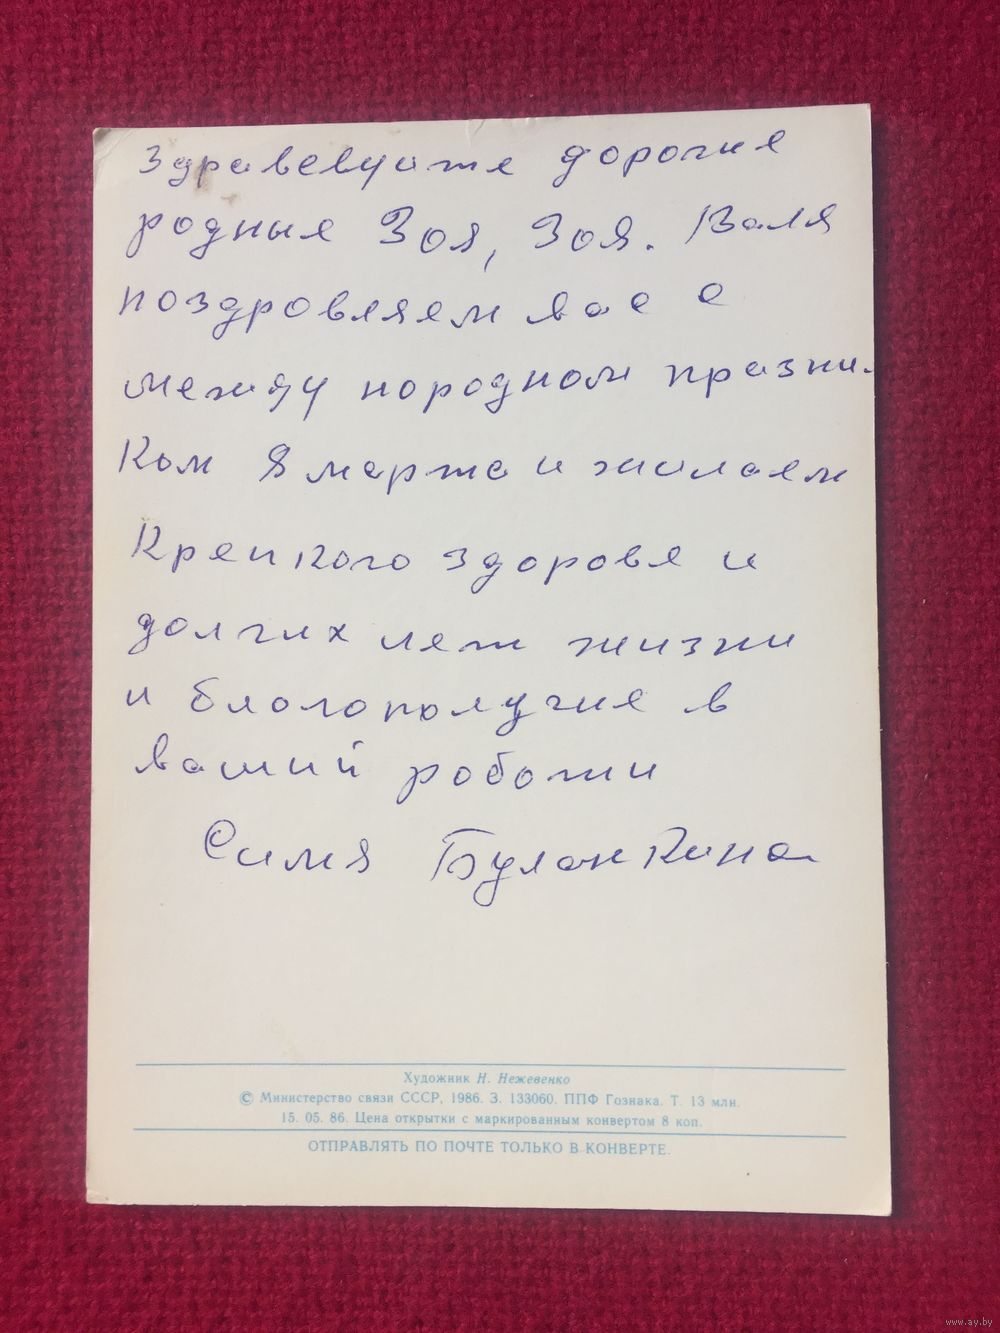 Здравсвуите дорогие
родные Зоя, Зоя. Валя
поздровляем вас с
между народном празни-
ком 8 марта и жилаем
Крепкого здоровя и
долгих лет жизни
и благополучие в
ваший работи
Симя Буланкина
Художник Н. Нежевенко
© Министерство связи СССР, 1986. З. 133060. ППФ Гознака. Т. 13 млн.
15. 05. 86. Цена открытки с маркированным конвертом 8 коп.
ОТПРАВЛЯТЬ ПО ПОЧТЕ ТОЛЬКО В КОНВЕРТЕ.
www.ay.by